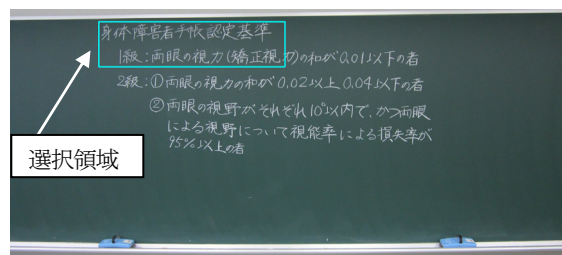 身体障害者手帳認定基準
1級:両眼の視力(矯正視力)の和が0.01以下の者
2級:①両眼の視力の和が0.02以上0.04以下の者
②両眼の視野がそれぞれ10°以内で、かつ両眼
による視野について視能率による損失率が
95%以上の者
選択領域